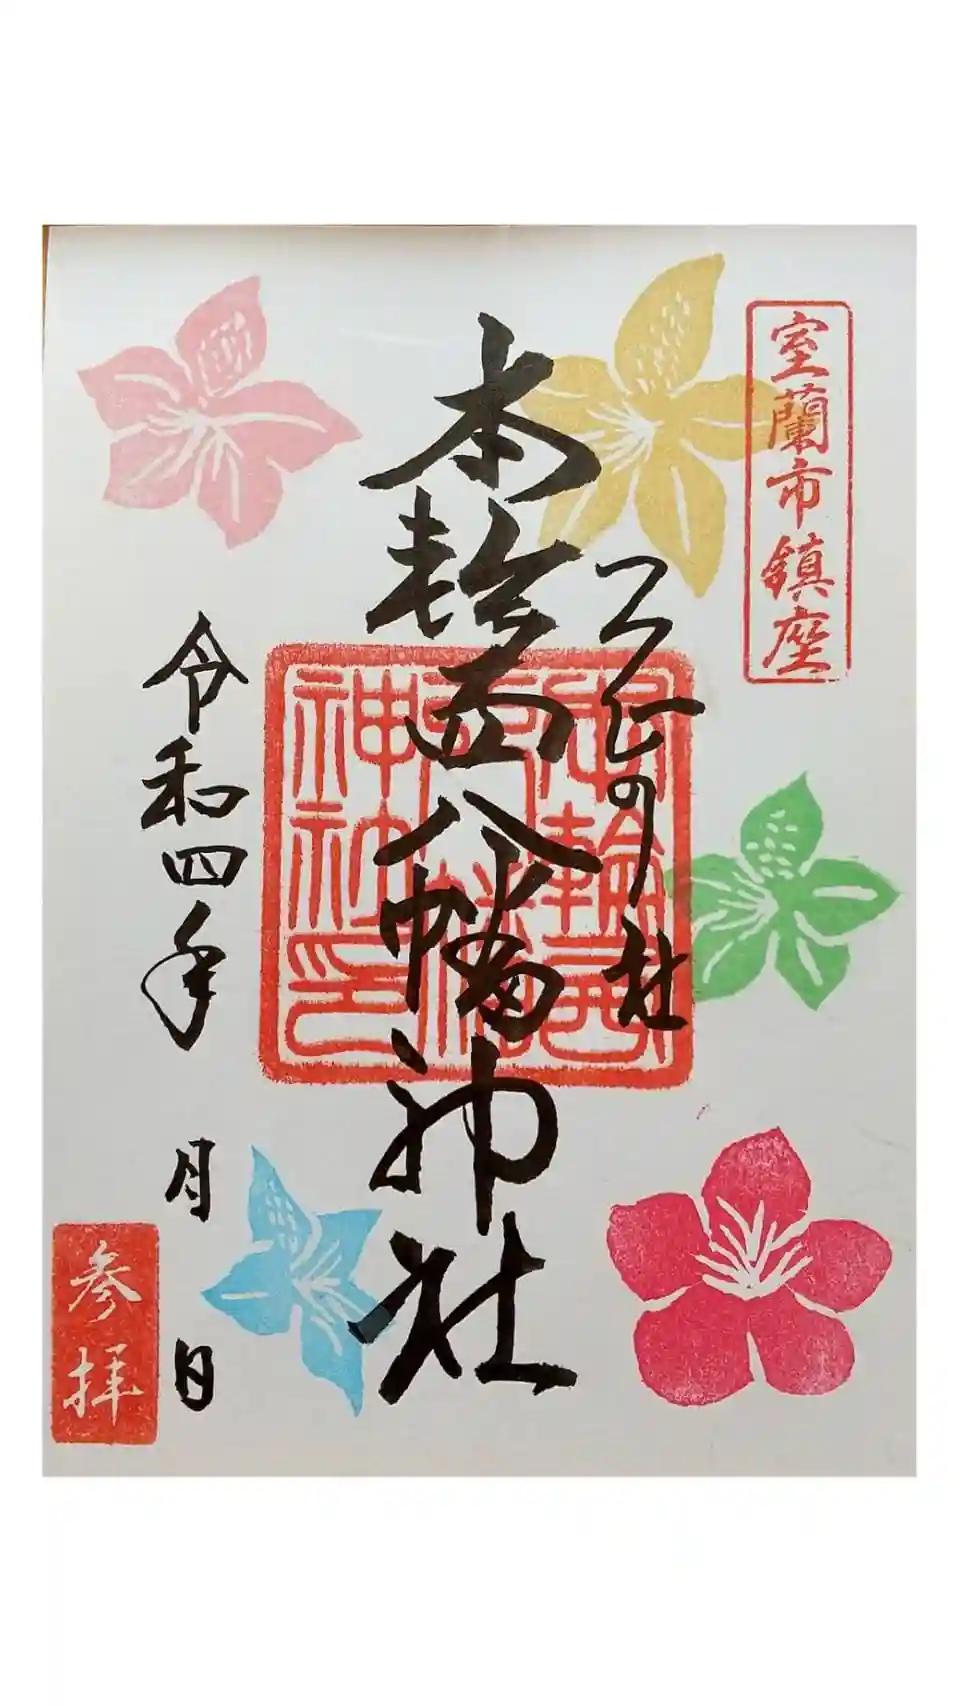 室蘭市鎮座
つつじの社
本輪西八幡神社
本輪西八幡神社印
令和四年 月 日
参拝